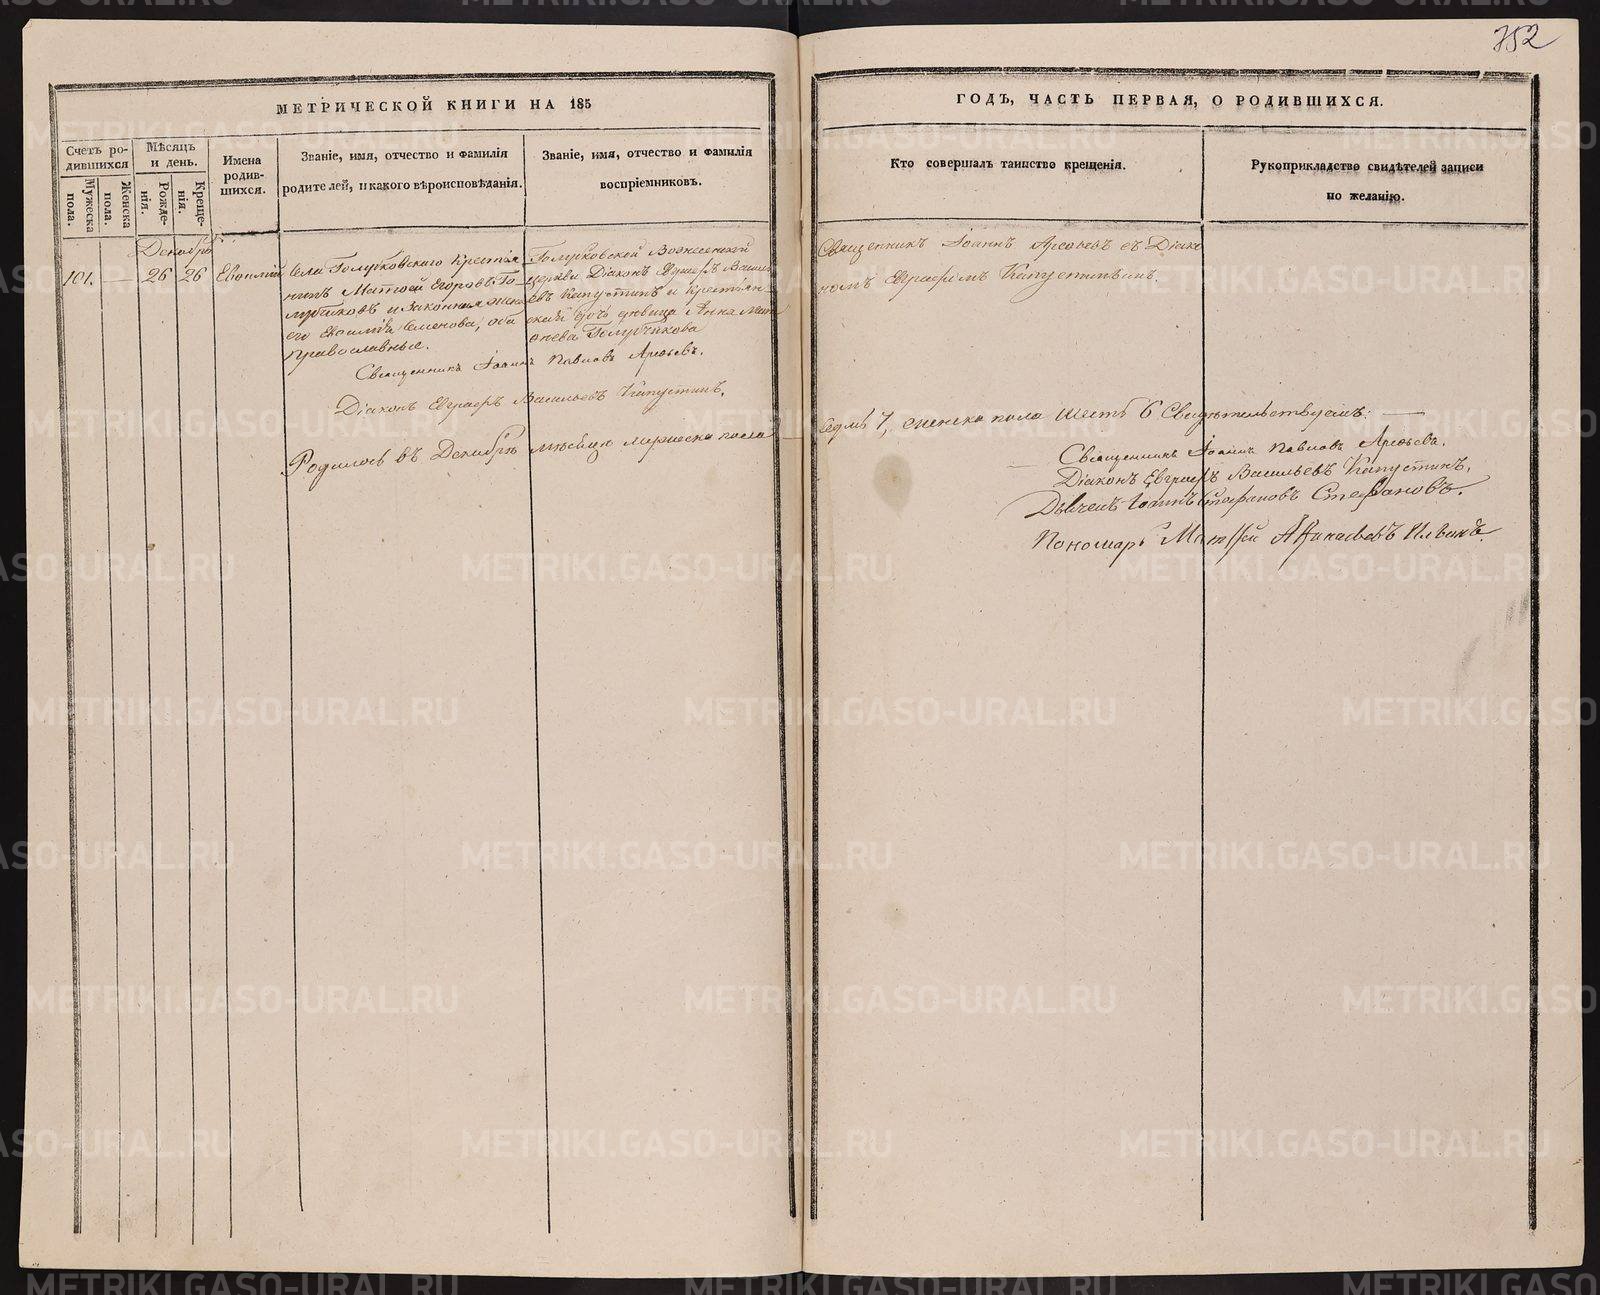 752
МЕТРИЧЕСКОЙ КНИГИ НА 185
ГОДЪ, ЧАСТЬ ПЕРВАЯ, О РОДИВШИХСЯ.
Счетъ ро-
дившихся
Мужеска
пола.
Женска
пола.
Мѣсяцъ
и день.
Рожде-
нія.
Креще-
нія.
Имена
родив-
шихся.
Званіе, имя, отчество и фамилія
родителей, и какого вѣроисповѣданія.
Званіе, имя, отчество и фамилія
воспріемниковъ.
Кто совершалъ таинство крещенія.
Рукоприкладство свидѣтелей записи
по желанію.
Декабрь
101. — 26 26
Села Голубковскаго Крестья-
нинъ Матвей Егоровъ Го-
лубчиковъ и законная жена
его Семенова, оба
православные.
Голубковской Вознесенской
церкви Діаконъ Евграфъ Василь-
евъ Капустинъ и крестьян-
ская дочь девица Анна Мат-
веева Голубчикова
Священникъ Іоаннъ съ Діако
номъ Евграфомъ Капустинымъ.
Священникъ Іоаннъ Павловъ
Діаконъ Евграфъ Васильевъ Капустинъ.
Родилось въ Декабрѣ мѣсяцѣ мужеска пола
седмь 7, женска пола шесть 6 Свидѣтельствуемъ: —
Священникъ Іоаннъ Павловъ
Діаконъ Евграфъ Васильевъ Капустинъ.
Дьячекъ Іоаннъ Стефановъ Стефановъ.
Пономарь Матѳей Аѳанасьевъ
METRIKI.GASO-URAL.RU